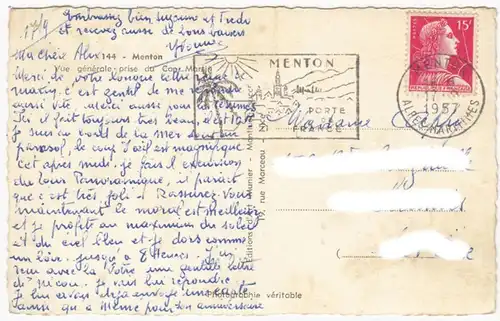 17/9
Embrassez bien Suzanne et Fredo
et recevez aussi de bons baisers
Yvonne
Ma chère Alex
144 - Menton
Vue générale prise du Cap Martin
Merci de votre longue lettre reçue
c'est gentil de me
aussi vite. Merci aussi pour
Ici il fait toujours très beau,
Je suis au bord de la mer sous un
parasol, le coup d'œil est magnifique
Cet après midi, je fais l'excursion
du tour Panoramique, il parait
que c'est très joli. Rassurez-vous
maintenant le moral est meilleur
et je profite au maximum du soleil
et du ciel bleu et je dors comme
un loir, jusqu'à 8 heures. J'ai eu
avec la vôtre une gentille lettre
de Nicou. Je vais lui répondre
Je lui avais déjà envoyé une carte
ainsi qu'à Mémé pour son anniversaire
MENTON
PORTE
FRANCE
15F
POSTES
MENTON
1957
ALPES-MARITIMES
Madame
rue Marceau - Nice
Photographie véritable